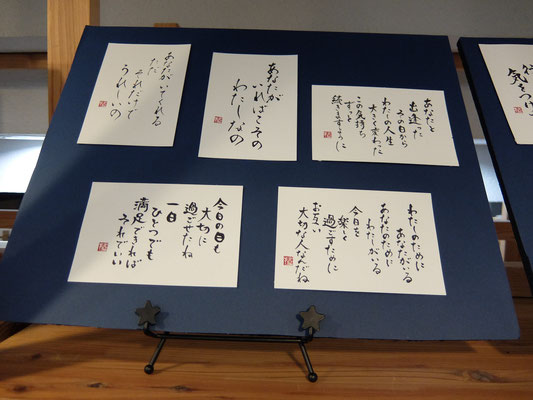 あなたがいてくれる
ただ
それだけで
うれしいの
あなたが
いればこその
わたしなの
あなたと
出逢った
その日から
わたしの人生
大きく変わった
この気持ち
ずっと
続きますように
今日の日も
大切に
過ごせたね
一日
ひとつでも
満足できれば
それでいい
わたしのために
あなたがいる
あなたのために
わたしがいる
今日を
楽しく
過ごすために
お互い
大切な人なんだね
気をつけ